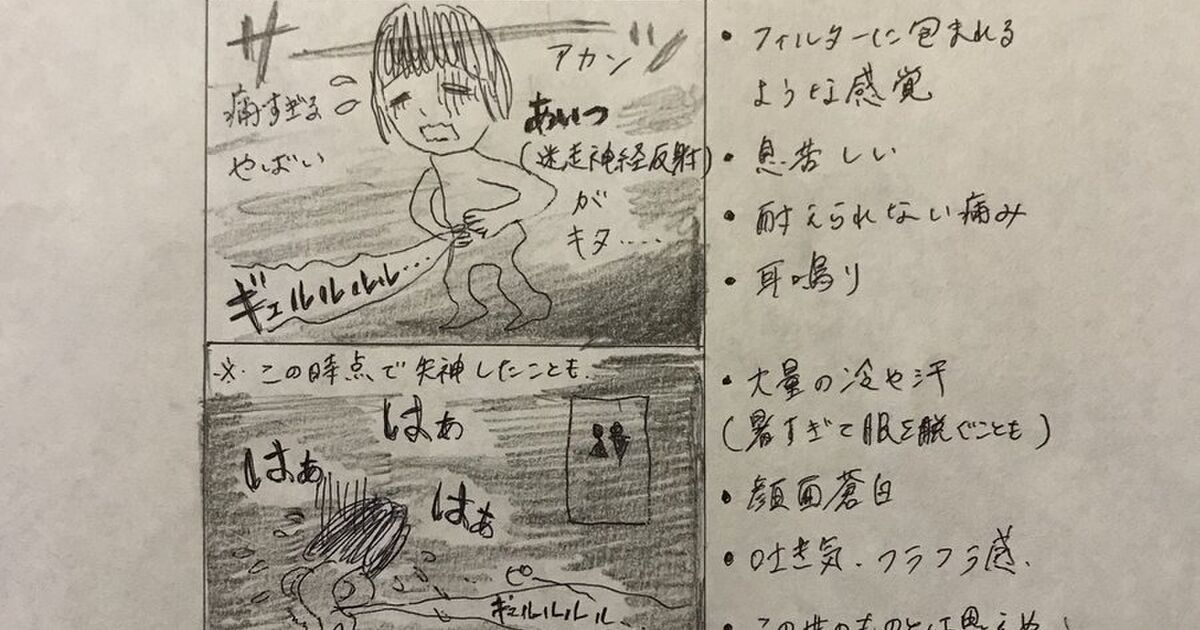 サーッ
アカン
痛すぎる
やばい
あいつ
(迷走神経反射)
が
キタ‥‥
ギュルルルル…
・フィルターに包まれる
ような感覚
・息苦しい
・耐えられない痛み
・耳鳴り
※この時点で失神したことも.
はぁ
はぁ
はぁ
ピ
ギュルルルル…
・大量の冷や汗
(暑すぎて服を脱ぐことも)
・顔面蒼白
・吐き気.フラフラ感.
・この世のものとは思えぬ